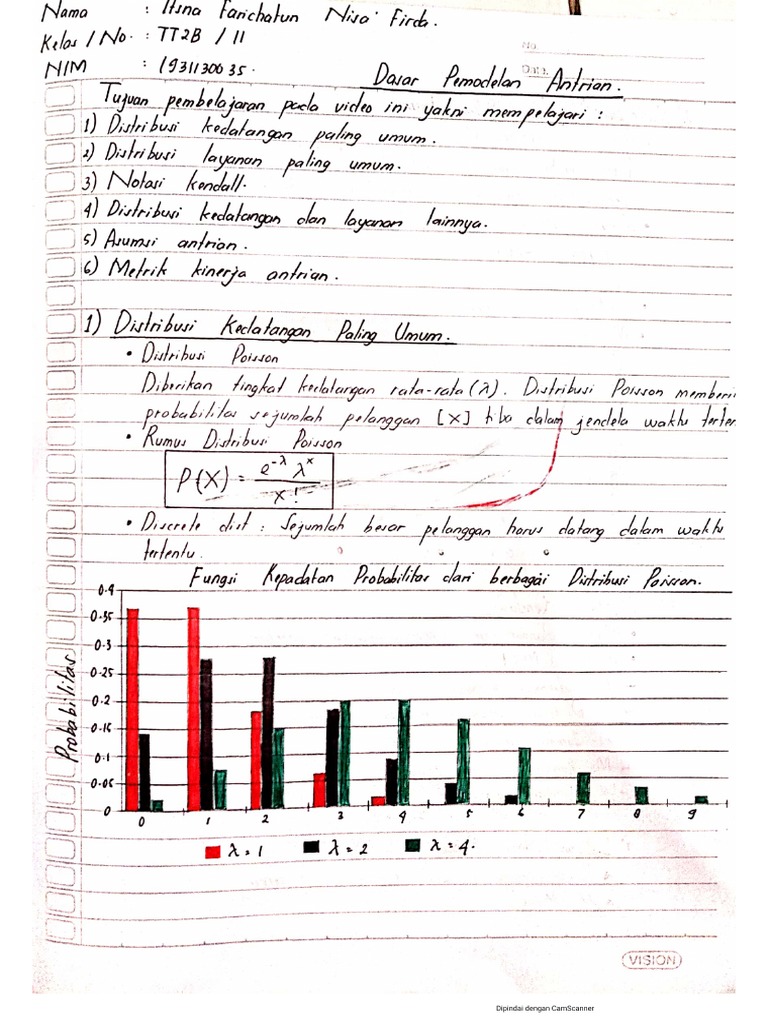 Nama : Itsna Farichatun Nisa' Firda.
Kelas / No. : TT2B / 11
NIM : 1931130035.
No.
Date.
Dasar Pemodelan Antrian.
Tujuan pembelajaran pada video ini yakni mempelajari :
1) Distribusi kedatangan paling umum.
2) Distribusi layanan paling umum.
3) Notasi kendall.
4) Distribusi kedatangan dan layanan lainnya.
5) Asumsi antrian.
6) Metrik kinerja antrian.
1) Distribusi Kedatangan Paling Umum.
• Distribusi Poisson
Diberikan tingkat kedatangan rata-rata (λ). Distribusi Poisson memberi
probabilitas sejumlah pelanggan [X] tiba dalam jendela waktu terten
• Rumus Distribusi Poisson
P(X) = e^-λ λ^x / x!
• Discrete dist : Sejumlah besar pelanggan harus datang dalam waktu
tertentu.
Fungsi Kepadatan Probabilitas dari berbagai Distribusi Poisson.
Probabilitas
0.4
0.35
0.3
0.25
0.2
0.15
0.1
0.05
0
0 1 2 3 4 5 6 7 8 9
λ = 1 λ = 2 λ = 4.
VISION
Dipindai dengan CamScanner